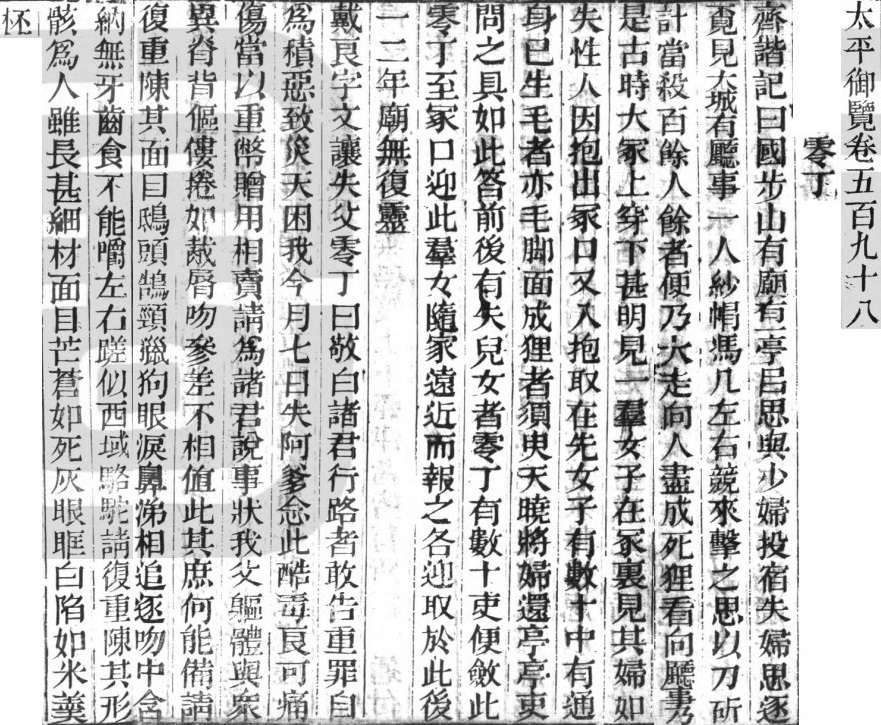 太平御覽卷五百九十八
零丁
齊諧記曰國步山有廟有一亭呂思與少婦投宿失婦思逐
覓見大城有廳事一人紗帽馮几左右競來擊之思以刀斫
計當殺百餘人餘者便乃大走向人盡成死狸看向廳事乃
是古時大冢上穿下甚明見一羣女子在冢裏見其婦如
失性人因抱出冢口又入抱取在先女子有數十中有通
身已生毛者亦毛脚面成狸者須臾天曉將婦還亭亭吏
問之具如此答前後有失兒女者零丁有數十吏便斂此
零丁至冢口迎此羣女隨家遠近而報之各迎取於此後
一二年廟無復靈
戴良字文讓失父零丁曰敬白諸君行路者敢告重罪自
爲積惡致災天困我今月七日失阿爹念此酷毒良可痛
傷當以重幣贈用相賣請爲諸君說事狀我父軀體與衆
異脊背傴僂捲如胾脣吻參差不相值此其庶何能備請
復重陳其面目鴟頭鵠頸獵狗眼淚鼻涕相追逐吻中含
納無牙齒食不能嚼左右蹉似西域駱駝請復重陳其形
骸爲人雖長甚細材面目芒蒼如死灰眼眶臼陷如米羹
柸